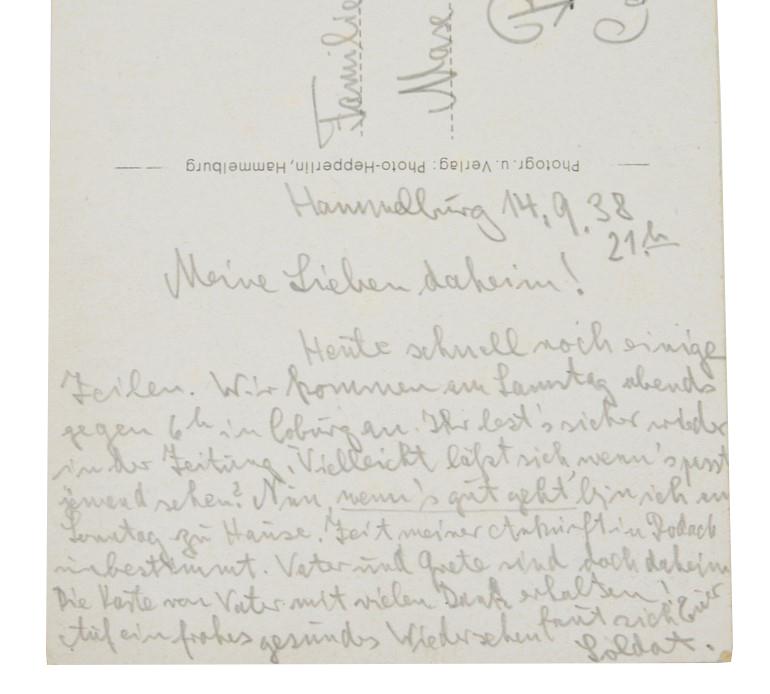 Familie
Photogr. u. Verlag: Photo-Hepperlin, Hammelburg
Hammelburg 14.9.38
21.h
Meine Lieben daheim!
Heute schnell noch einige
Zeilen. Wir kommen am Samstag abends
gegen 6h in Coburg an. Ihr lest's sicher wieder
in der Zeitung. Vielleicht läßt sich, wenn's passt
jemand sehen? Nun, wenn's gut geht, bin ich am
Sonntag zu Hause. Zeit meiner Ankunft in Rodach
unbestimmt. Vater und Grete sind doch daheim
Die Karte von Vater mit vielen Dank erhalten!
Auf ein frohes gesundes Wiedersehen freut sich Euer
Soldat.